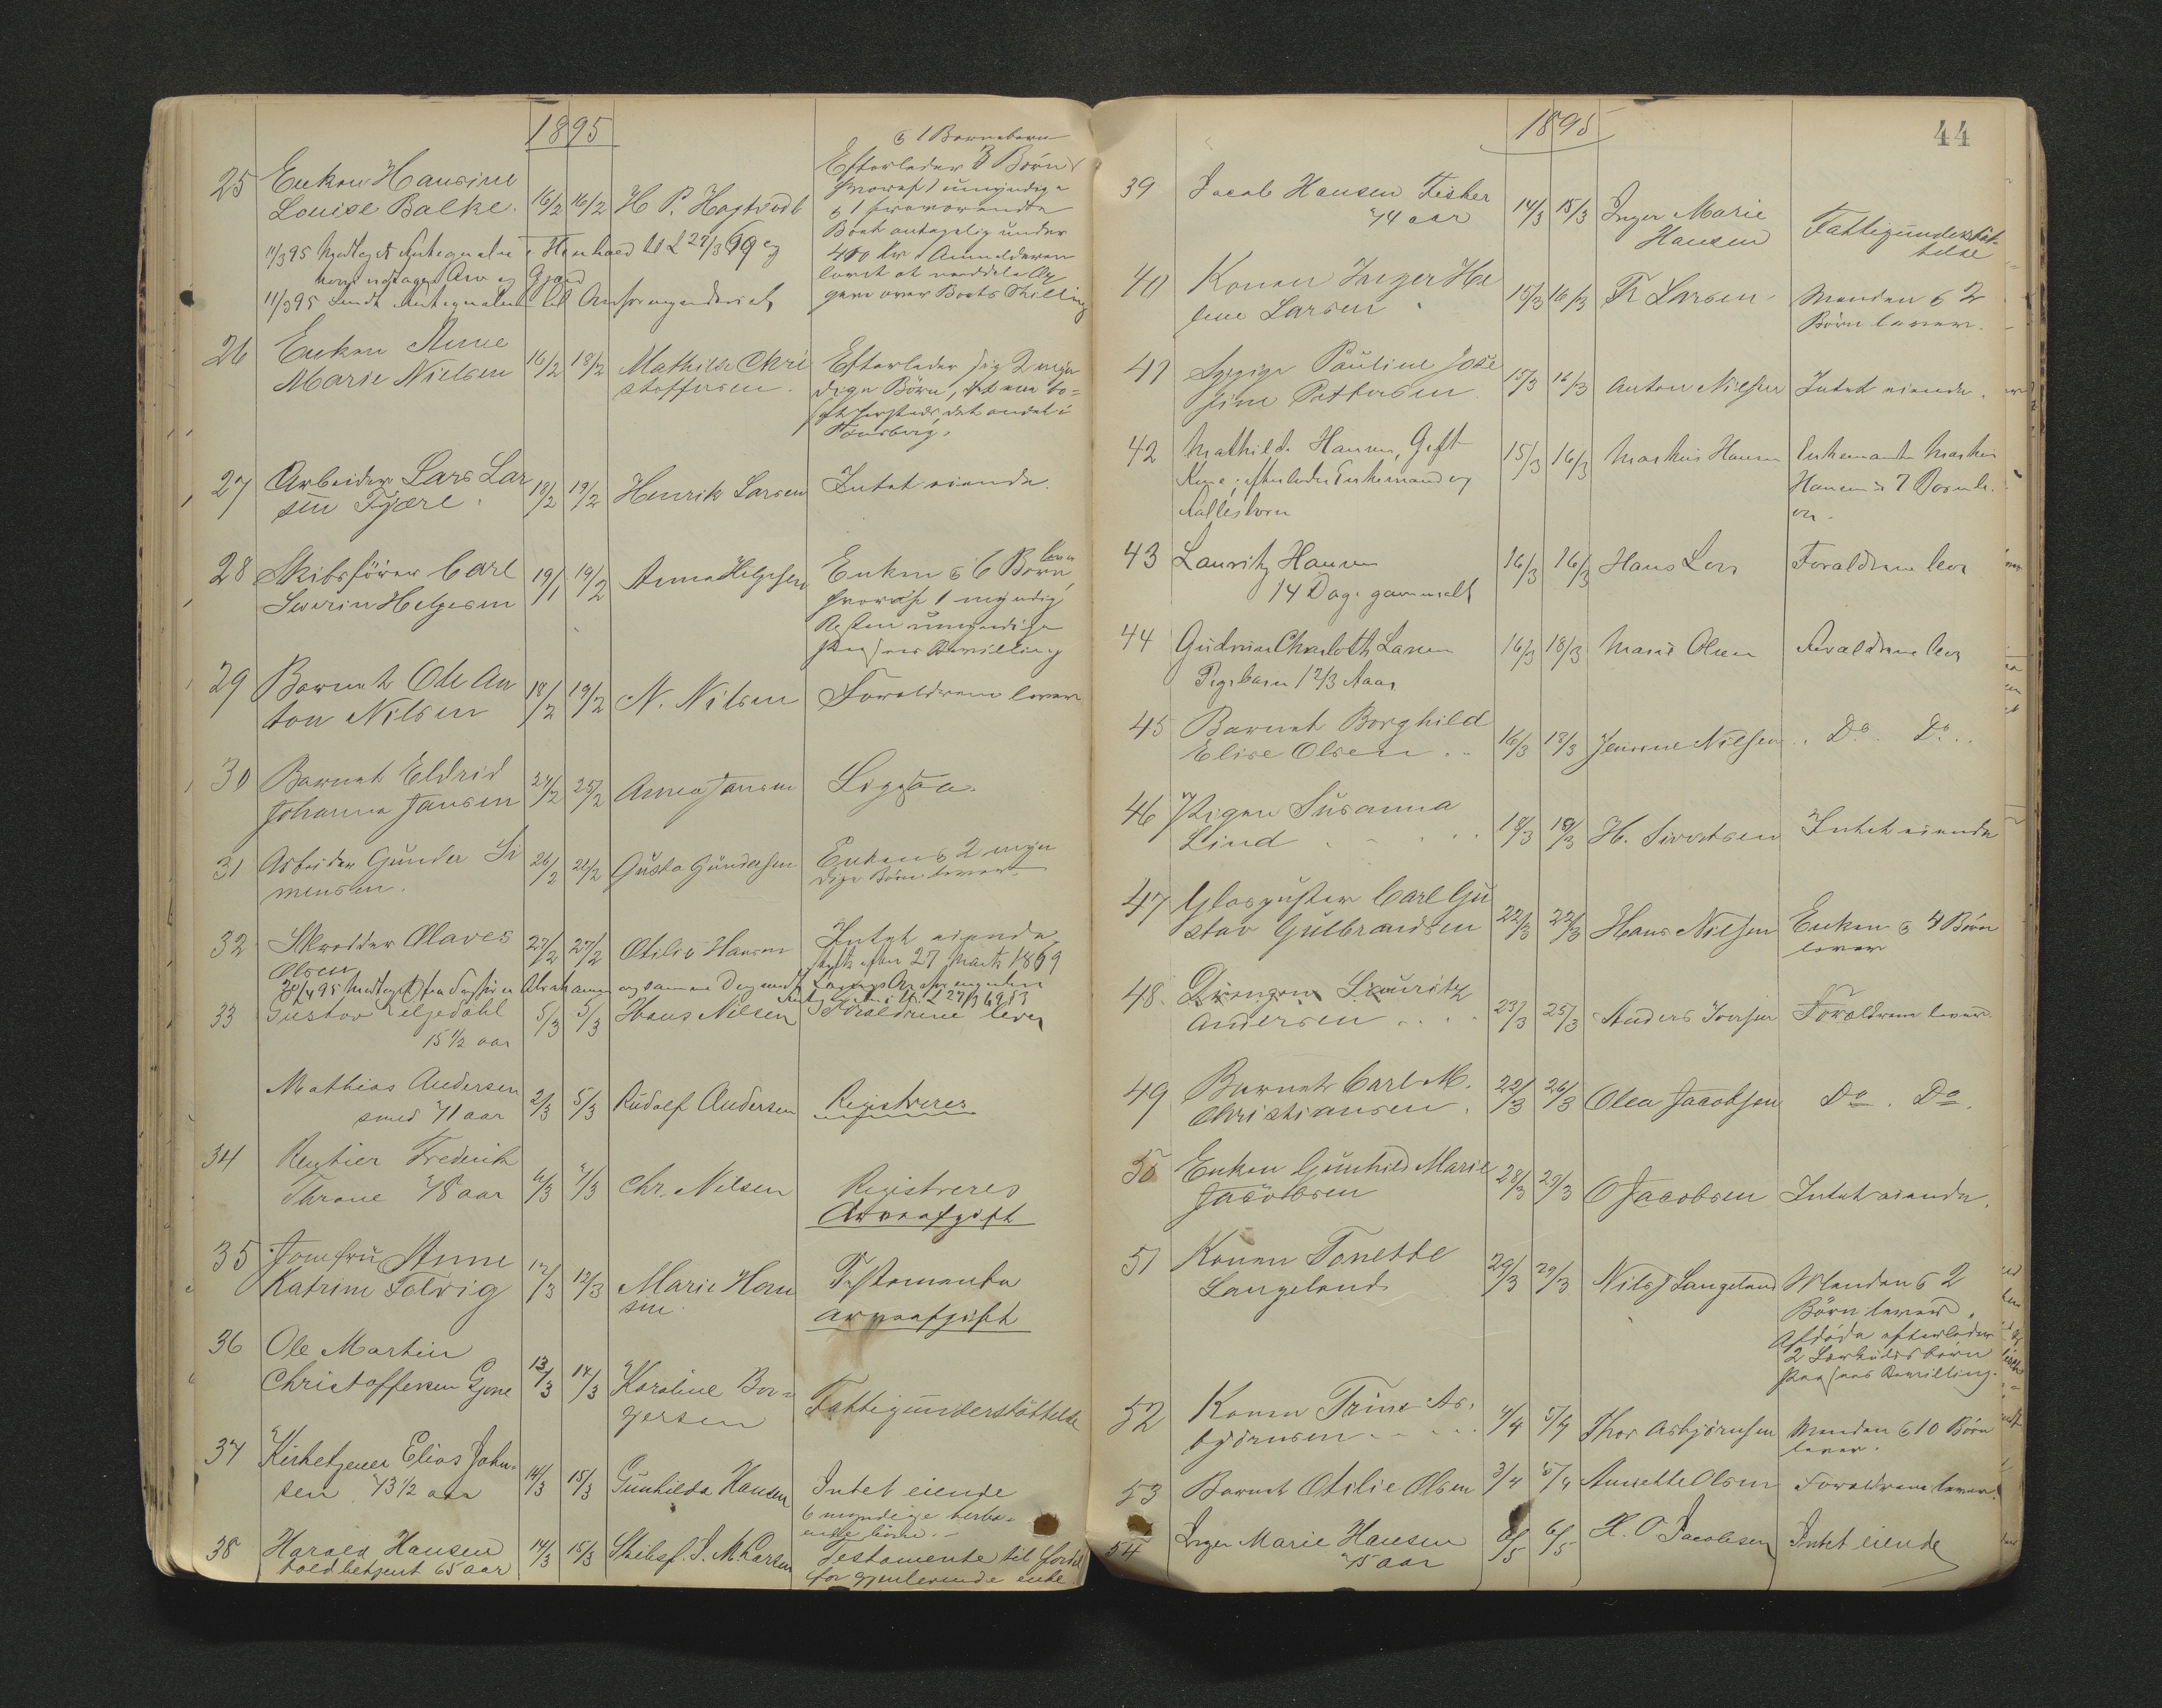 1895
& 1 Barnebarn
25 Enken Hansine
Louise Balke. 16/2 16/2 H. P.
Efterlader 3 Børn
hvoraf 1 umyndige
& 1 fraværende
Boet antagelig under
400 Kr Anmelderen
lovet at meddele
over Boets Stilling
11/3 95 Modtaget
11/3 95 Sendt
26 Enken Anne
Marie Nielsen 16/2 18/2 Mathilde Chri
stoffersen.
Efterlader sig 2 myn
dige Børn, det ene bo-
sat hersteds, det andet i
Tønsberg.
27 Arbeider Lars Lar
sen Tjære. 18/2 19/2 Henrik Larsen Intet eiende.
28 Skibsfører Carl
Severin Helgesen 19/1 19/2 Anna Helgesen
Enken & 6 Børn lever
hvoraf 1 myndig
Resten umyndige
Bevilling
29 Barnet Ole An
ton Nilsen 18/2 19/2 N. Nilsen Forældrene lever
30 Barnet Eldrid
Johanna Jansen 24/2 25/2 Anna Jansen Ligesaa.
31 Arbeider Gunder Si
mensen. 26/2 26/2 Gusta Gundersen
Enken & 2 myn
dige Børn lever
32 Skrædder Olaves
Olsen 27/2 27/2 Otilie Hansen
Intet eiende
27 Marts 1869
33 Gustav Leljedahl
15 1/2 aar 5/3 5/3 Hans Nilsen Forældrene lever
Mathias Andersen
smed 71 aar 2/3 5/3 Rudolf Andersen Registreres
34 Rentier Frederik
Throne 78 aar 6/3 7/3 Chr. Nilsen Registreres
Arveafgift
35 Jomfru Anne
Katrine Folvig 12/3 12/3 Marie Han
sen.
Testamente
Arveafgift
36 Ole Martin
Christoffersen Gjone 13/3 14/3 Karoline Bor-
gersen Fattigunderstøttelse
37 Kirketjener Elias John-
sen 73 1/2 aar 14/3 15/3 Gunhilda Hansen Intet eiende
6 myndige
børn.
38 Harald Hansen
toldbetjent 65 aar 14/3 15/3 Skibsf. J. M. Larsen Testamente til fordel
for gjenlevende enke
1895
44
39 Jacob Hansen Fisker
74 aar 14/3 15/3 Inger Marie
Hansen Fattigunderstøt-
telse
40 Konen Inger He
lene Larsen 15/3 16/3 Fr Larsen
Manden & 2
Børn lever.
41 Pauline Jose
fine Pettersen 15/3 16/3 Anton Nilsen Intet eiende.
42 Mathilde Hansen, Gift
Kone, efterlader Enkemand og
Fællesbørn 15/3 16/3 Markus Hansen Enkemanden Markus
Hansen & 7
43 Lauritz Hansen
14 Dage gammelt 16/3 16/3 Hans Forældrene lever
44 Gudrun Charloth Larsen
Pigebarn 1 2/3 Aar 16/3 18/3 Marie Olsen Forældrene lever
45 Barnet Borghild
Elise Olsen .. 16/3 18/3 Nilsen .. Do. Do...
46 Pigen Susanna
Lind 18/3 19/3 H. Sivertsen Intet eiende
47 Glaspuster Carl Gu
stav Gulbrandsen 22/3 22/3 Hans Nilsen Enken & 4 Børn
lever
48. Drengen Lauritz
Andersen .... 23/3 25/3 Anders Iversen Forældrene lever.
49 Barnet Carl M.
Christiansen. 22/3 26/3 Olea Jacobsen Do. Do.
50 Enken Gunhild Marie
Jacobsen 28/3 29/3 O Jacobsen Intet eiende.
51 Konen Tonette
Langeland 29/3 29/3 Nils J Langeland Manden & 2
Børn lever.
Afdøde efterlader
2 Særkuldsbørn
Bevilling.
52 Konen Trine As-
bjørnsen 4/4 5/4 Thor Asbjørnsen Manden & 10 Børn
lever.
53 Barnet Otilie Olsen 3/4 5/4 Annette Olsen Forældrene lever.
54 Inger Marie Hansen
75 aar 6/5 6/5 H. O Jacobsen Intet eiende